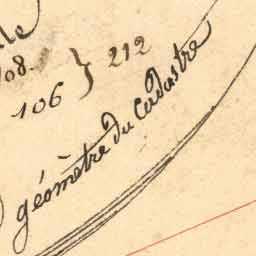 le
08.
106 } 212
géomètre du Cadastre